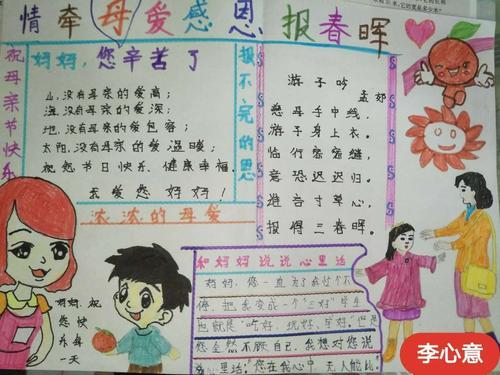 情牵母爱感恩报春晖
祝母亲节快乐
妈妈,您辛苦了
山,没有母亲的爱高;
海,没有母亲的爱深;
地,没有母亲的爱包容;
太阳,没有母亲的爱温暖;
祝您节日快乐、健康幸福。
我爱您妈妈!
浓浓的母爱
报不完的恩
游子吟
孟郊
慈母手中线,
游子身上衣。
临行密密缝,
意恐迟迟归。
谁言寸草心,
报得三春晖。
妈妈,祝
您快
乐每
一天
和妈妈说说心里话
妈妈,您一直为了我忙个不
停,把我变成一个“三好”学生
也就是“吃好,玩好,学好”,但是
您全然不顾自己,我想对您说
心里话:“您在我心中,无人能比
李心意